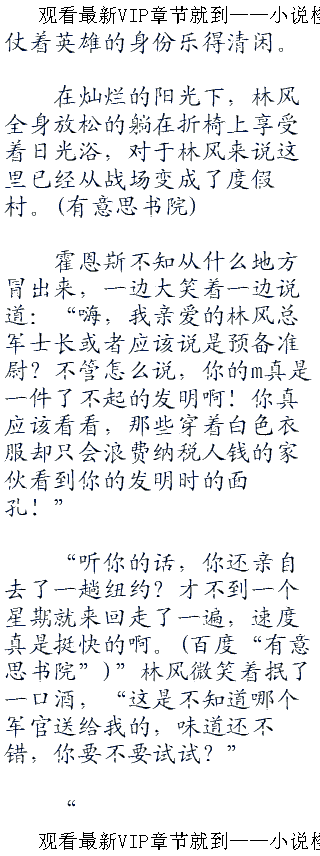 观看最新VIP章节就到——小说
仗着英雄的身份乐得清闲。
在灿烂的阳光下，林风
全身放松的躺在折椅上享受
着日光浴，对于林风来说这
里已经从战场变成了度假
村。(有意思书院)
霍恩斯不知从什么地方
冒出来，一边大笑着一边说
道：“嗨，我亲爱的林风总
军士长或者应该说是预备准
尉？不管怎么说，你的m真是
一件了不起的发明啊！你真
应该看看，那些穿着白色衣
服却只会浪费纳税人钱的家
伙看到你的发明时的面
孔！”
“听你的话，你还亲自
去了一趟纽约？才不到一个
星期就来回走了一遍，速度
真是挺快的啊。(百度“有意
思书院”)”林风微笑着抿了
一口酒，“这是不知道哪个
军官送给我的，味道还不
错，你要不要试试？”
“
观看最新VIP章节就到——小说